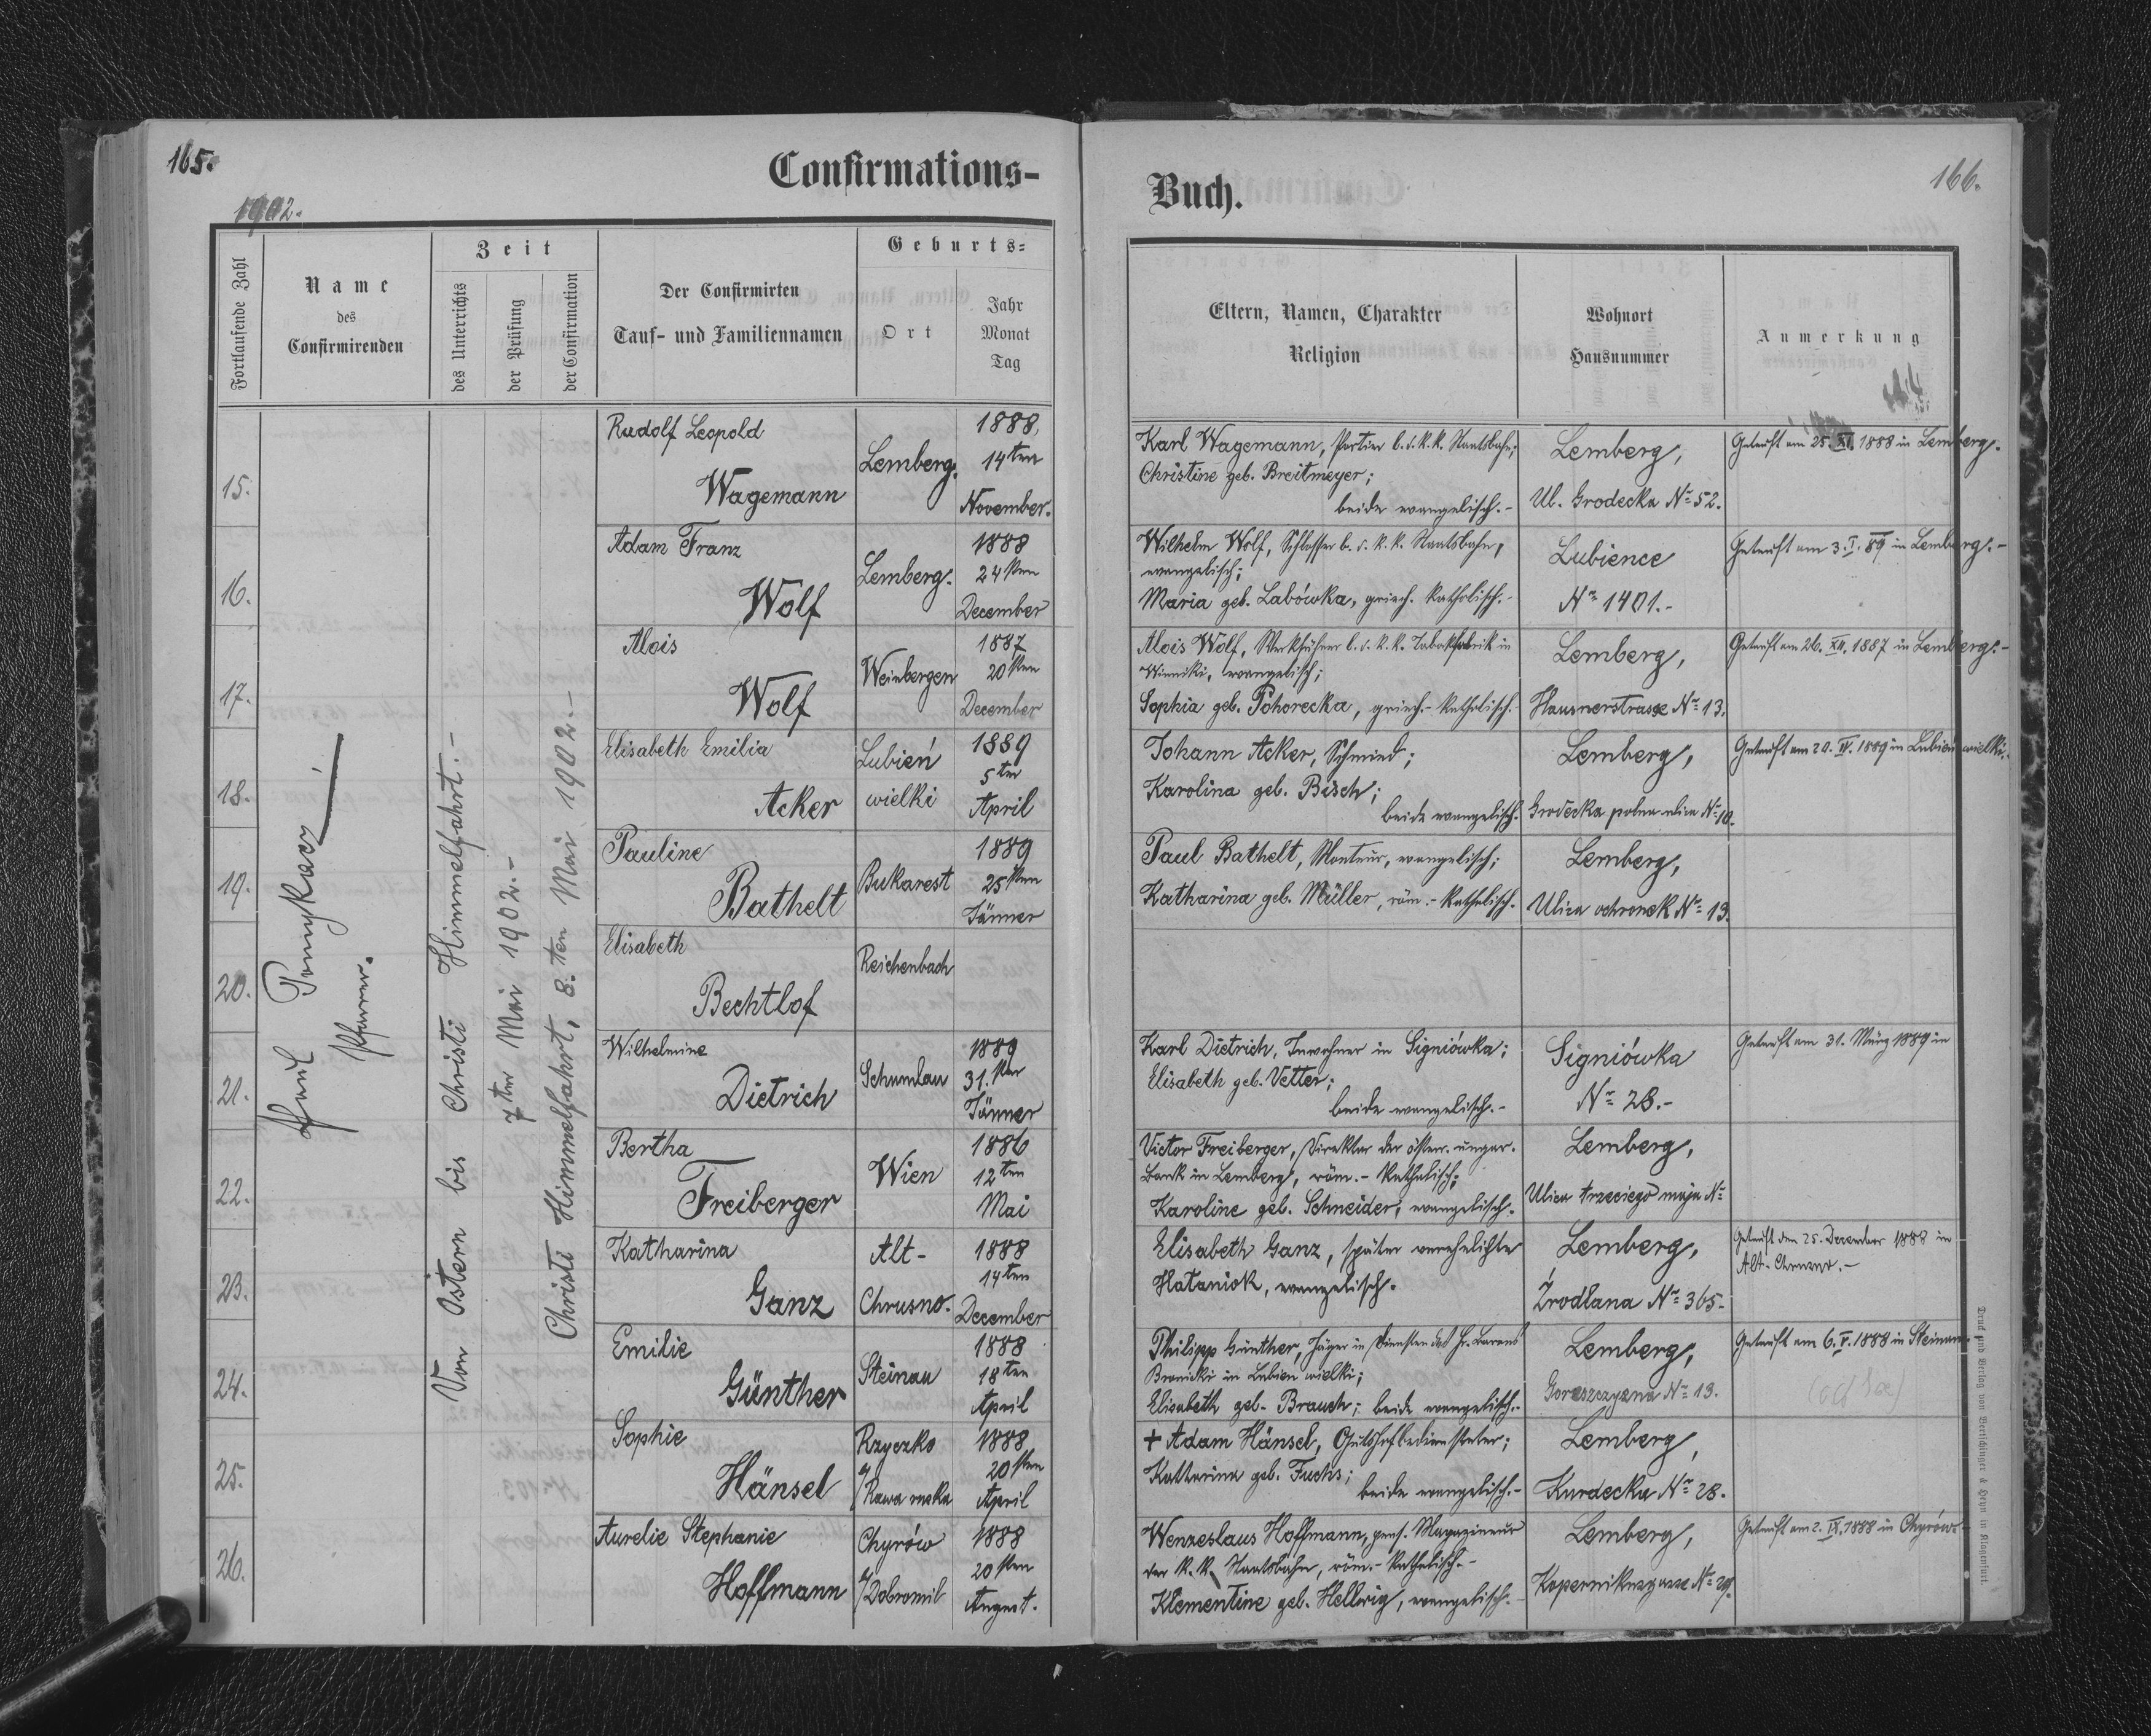 165.
Confirmations-
1902.
Fortlaufende Zahl
Name
des
Confirmirenden
Zeit
des Unterrichts
der Prüfung
der Confirmation
Der Confirmirten
Tauf- und Familiennamen
Geburts-
Ort
Jahr
Monat
Tag
Paul
Pfarrer.
Von Ostern bis Christi Himmelfahrt.-
7ten Mai 1902.-
Christi Himmelfahrt, 8.ten Mai 1902.-
15.
Rudolf Leopold
Wagemann
Lemberg.
1888,
14ten
November.
16.
Adam Franz
Wolf
Lemberg.
1888
24sten
December
17.
Alois
Wolf
Weinbergen
1887
20sten
December
18.
Elisabeth Emilia
Acker
Lubień
wielki
1889
5ten
April
19.
Pauline
Bathelt
Bukarest
1889
25sten
Jänner
20.
Elisabeth
Bechtlof
Reichenbach
21.
Wilhelmine
Dietrich
Schumlau
1889
31.sten
Jänner
22.
Bertha
Freiberger
Wien
1886
12ten
Mai
23.
Katharina
Ganz
Alt-
Chrusno.
1888
14ten
December
24.
Emilie
Günther
Steinau
1888
18ten
April
25.
Sophie
Hänsel
Rzyczko
a/Rawa ruska
1888
20sten
April
26.
Aurelie Stephanie
Hoffmann
Chyrów
a/Dobromil
1888
20sten
August.
166.
Buch.
Eltern, Namen, Charakter
Religion
Wohnort
Hausnummer
Anmerkung
Karl Wagemann, Portier b. d. k. k. Staatsbahn;
Christine geb. Breitmeyer;
beide evangelisch.-
Lemberg,
Ul. Grodecka No 52.
Getauft am 25. XI. 1888 in Lemberg.
Wilhelm Wolf, Schlosser b. d. k. k. Staatsbahn,
evangelisch;
Maria geb. Labówka, griech. katholisch.-
Lubience
No 1401.-
Getauft am 3. I. 89 in Lemberg.-
Alois Wolf, Werkführer b. d. k. k. Tabakfabrik in
Winniki, evangelisch;
Sophia geb. Pohorecka, griech.-katholisch.-
Lemberg,
Hausnerstrasse No 13.
Getauft am 26. XII. 1887 in Lemberg.-
Johann Acker, Schmied;
Karolina geb. Bisch;
beide evangelisch.
Lemberg,
Grodecka polna ulica No 10.
Getauft am 20. IV. 1889 in Lubień wielki.
Paul Bathelt, Monteur, evangelisch;
Katharina geb. Müller, röm.-katholisch.
Lemberg,
Ulica ochronek No 13.
Karl Dietrich, Inwohner in Signiówka;
Elisabeth geb. Vetter;
beide evangelisch.-
Signiówka
No 28.-
Getauft am 31. März 1889 in
Victor Freiberger, Direktor der österr. ungar.
Bank in Lemberg, röm.-katholisch;
Karoline geb. Schneider, evangelisch.
Lemberg,
Ulica trzeciego maja No
Elisabeth Ganz, später verehelichte
Hataniok, evangelisch.
Lemberg,
Źrodlana No 365.
Getauft den 25. December 1888 in
Alt-Chrusno.-
Philipp Günther, Jäger in Diensten des Hr. Barons
Brunicki in Lubien wielki;
Elisabeth geb. Brauch; beide evangelisch.-
Lemberg,
No 13.
Getauft am 6. V. 1888 in Steinau.
+ Adam Hänsel, Gutshofbediensteter;
Katharina geb. Fuchs;
beide evangelisch.-
Lemberg,
Kurdecka No 28.
Wenzeslaus Hoffmann, pens. Magazineur
der k. k. Staatsbahn, röm.-katholisch.-
Klementine geb. Hellwig, evangelisch.-
Lemberg,
Kopernikusgasse No 29.
Getauft am 2. IX. 1888 in Chyrów.
Druck und Verlag von Bertschinger & Heyn in Klagenfurt.